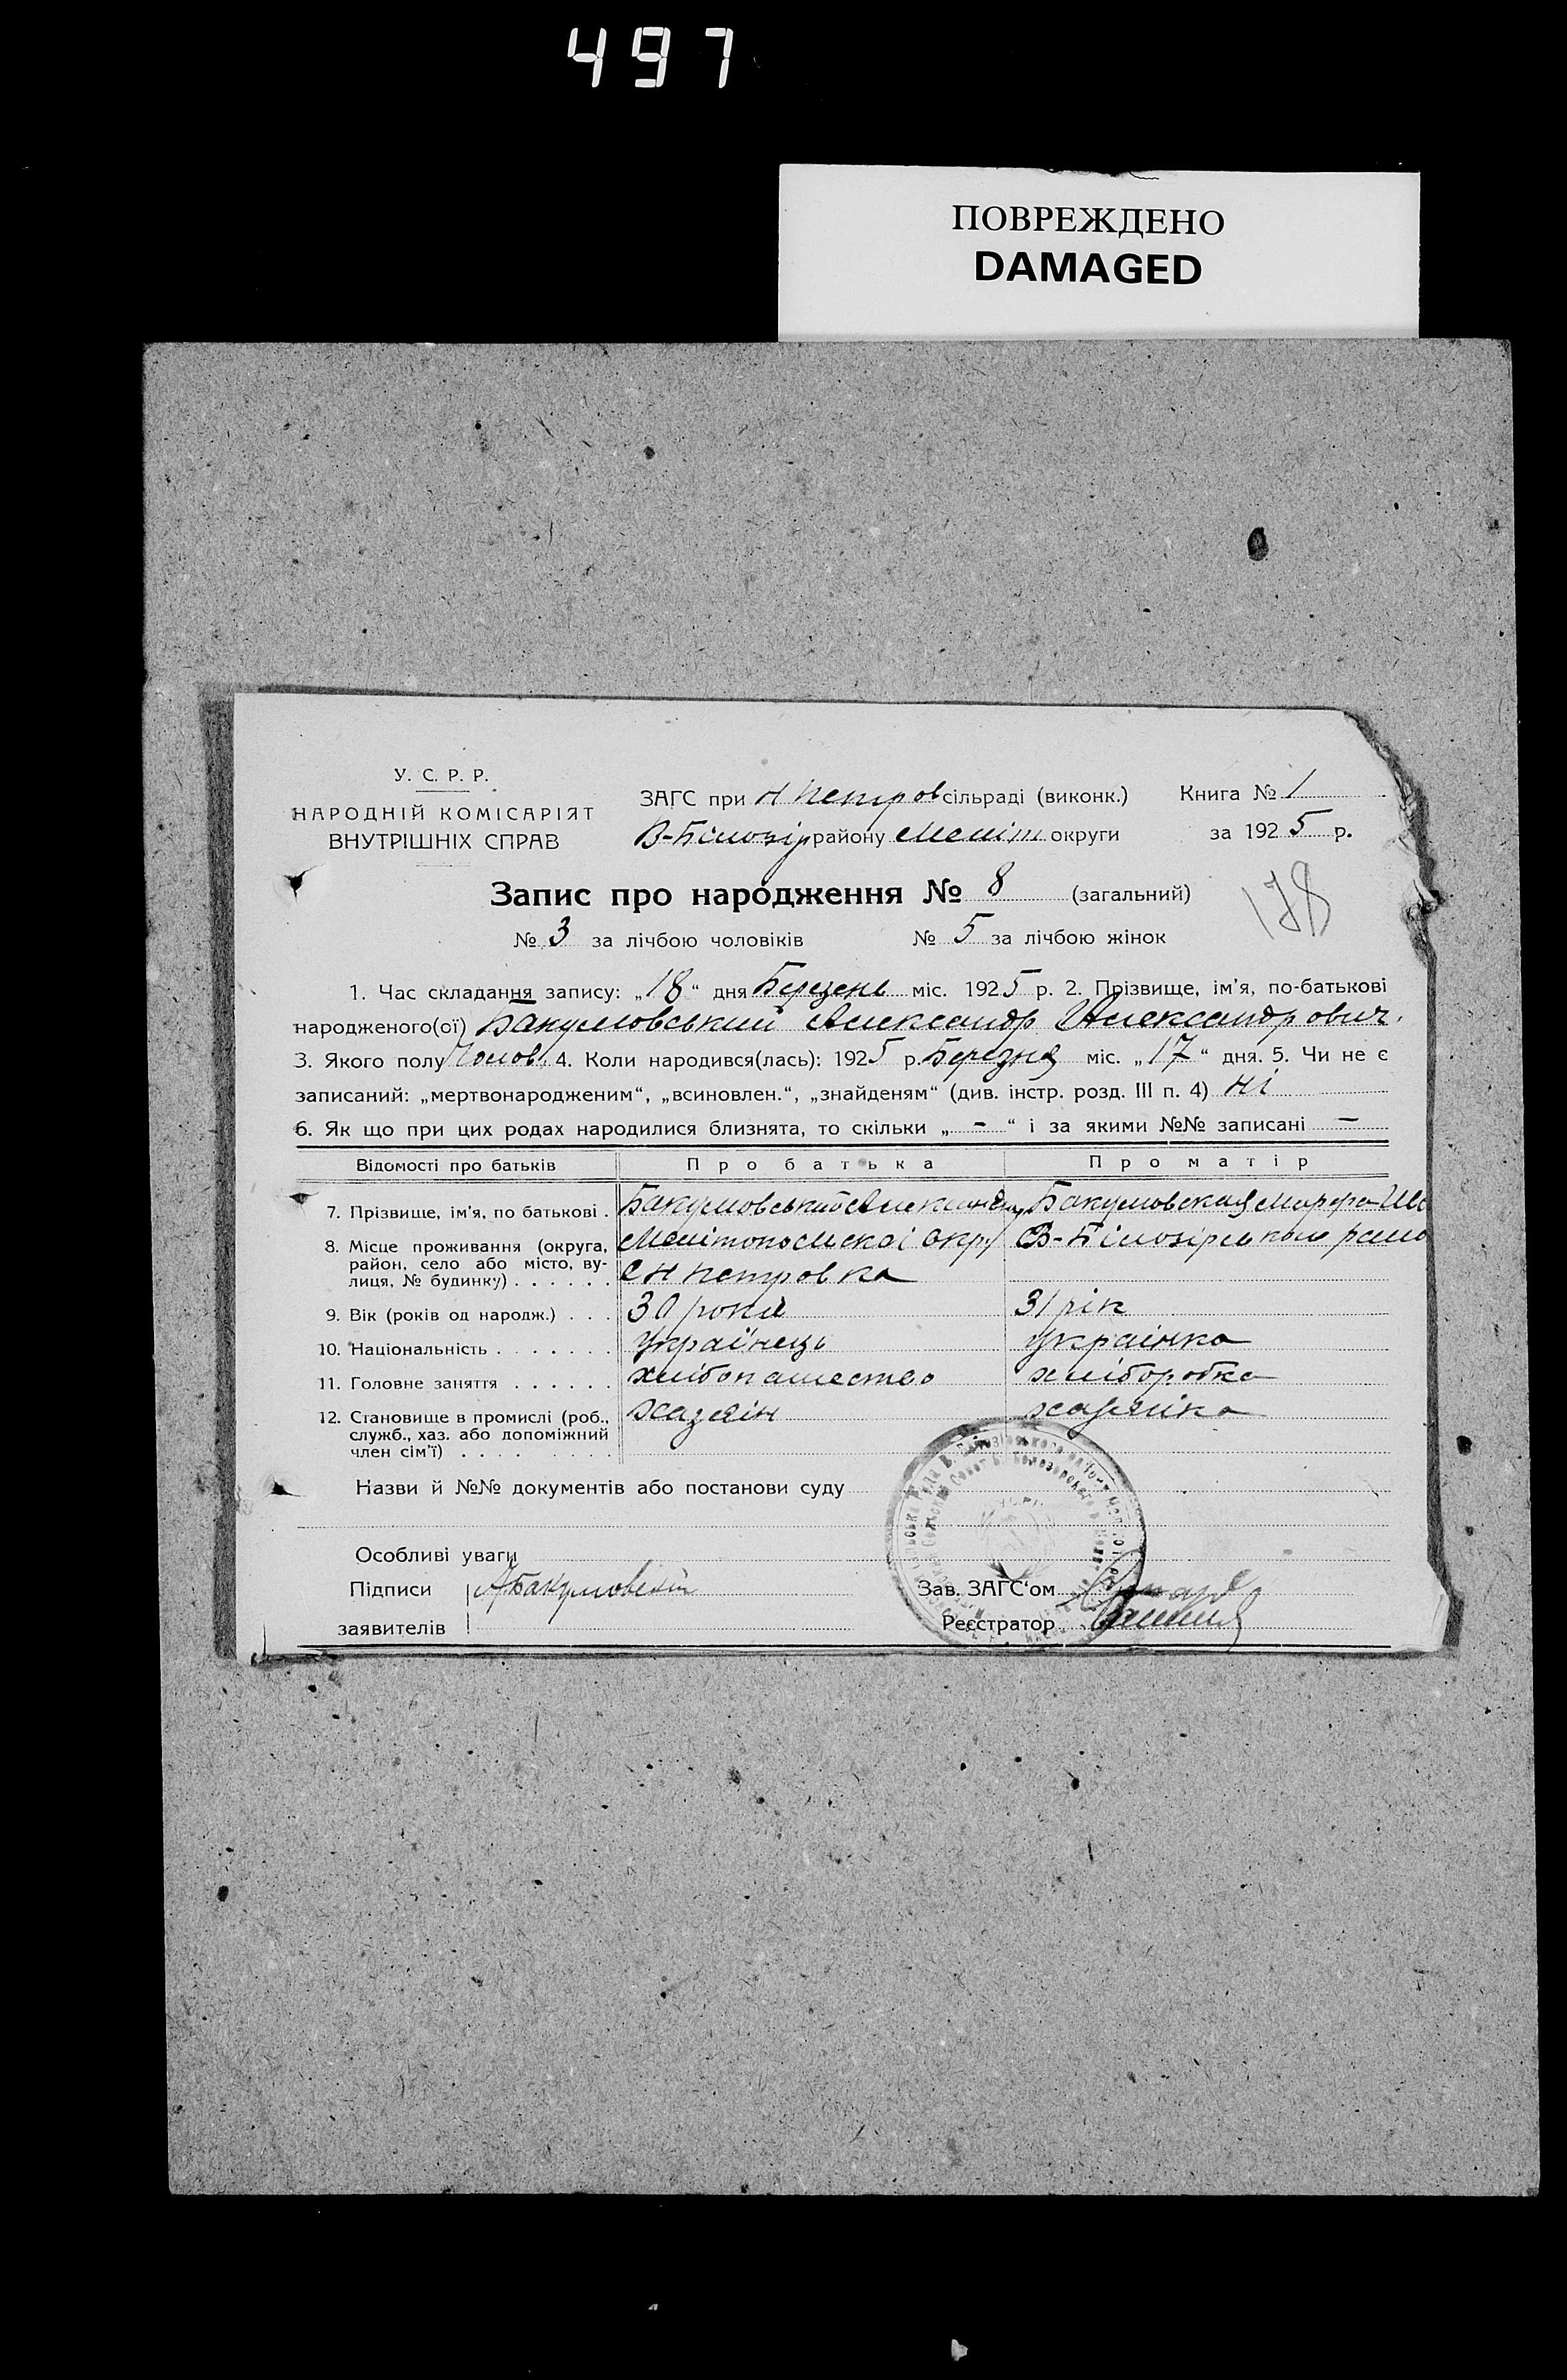 497
ПОВРЕЖДЕНО
DAMAGED
У. С. Р. Р.
НАРОДНІЙ КОМІСАРІЯТ
ВНУТРІШНІХ СПРАВ
ЗАГС при Н Петров сільраді (виконк.) Книга № 1
В-Білозір району Меліт округи за 1925 р.
Запис про народження № 8 (загальний)
178
№ 3 за лічбою чоловіків № 5 за лічбою жінок
1. Час складання запису: „18“ дня Березень міс. 1925 р. 2. Прізвище, ім'я, по-батькові
народженого(ої) Бакумовський Александр Александрович.
3. Якого полу Чолов. 4. Коли народився(лась): 1925 р. Березня міс. „17“ дня. 5. Чи не є
записаний: „мертвонародженим“, „всиновлен.“, „знайденям“ (див. інстр. розд. III п. 4) ні
6. Як що при цих родах народилися близнята, то скільки „ - “ і за якими №№ записані -
Відомості про батьків Про батька Про матір
7. Прізвище, ім'я, по батькові . Бакумовський Александр Бакумовская Марфа
8. Місце проживання (округа, район, село або місто, вулиця, № будинку) . . . . . . Мелітопольскої окр. В-Білозірського
с Н Петровка
9. Вік (років од народж.) . . . 30 років 31 рік
10. Національність . . . . . . . Українець українка
11. Головне заняття . . . . . . хлібопашество хліборобка
12. Становище в промислі (роб., служб., хаз. або допоміжний член сім'ї) . . . . хазяін хазяіка
Назви й №№ документів або постанови суду
Особливі уваги
Підписи АБакумовский Зав. ЗАГС'ом
заявителів Реєстратор